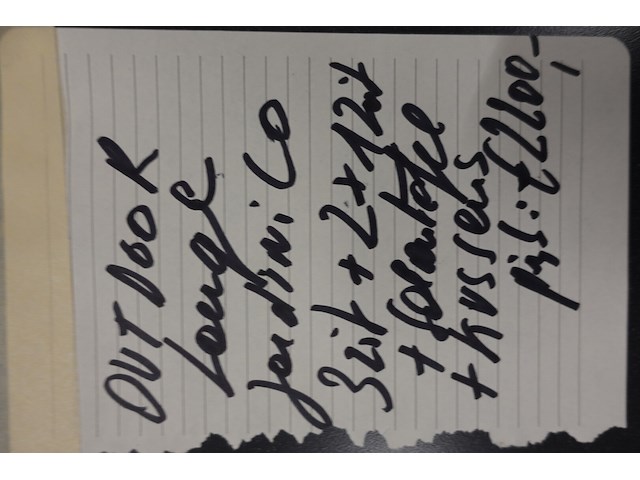 OUTDOOR
Lounge
Jardinico
3zit + 2x1zit
+ salontafel
+ kussens
prijs: €2200,-